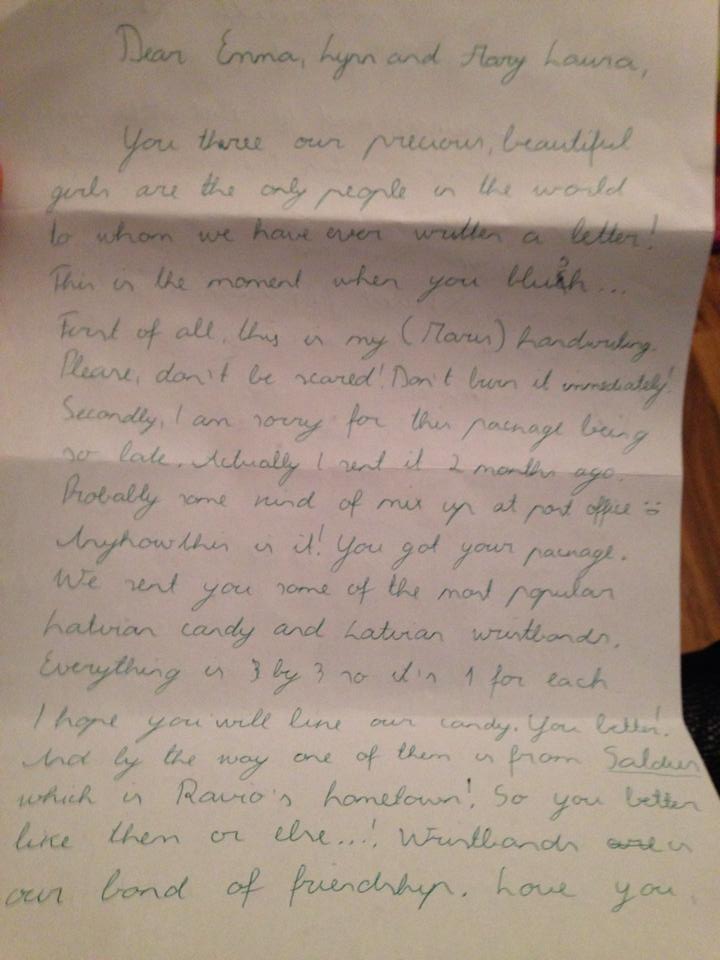 Dear Emma, Lynn and Mary Laura,
You three our precious, beautiful
girls are the only people in the world
to whom we have ever written a letter!
This is the moment when you blush...
First of all, this is my (Maris) handwriting.
Please, don't be scared! Don't burn it immediately!
Secondly, I am sorry for this package being
so late. Actually I sent it 2 months ago.
Probably some kind of mix up at post office :)
Anyhow this is it! You got your package.
We sent you some of the most popular
Latvian candy and Latvian wristbands.
Everything is 3 by 3 so it's 1 for each
I hope you will like our candy. You better!
And by the way one of them is from Saldus
which is Raivo's hometown! So you better
like them or else...! Wristbands is
our bond of friendship. Love you.